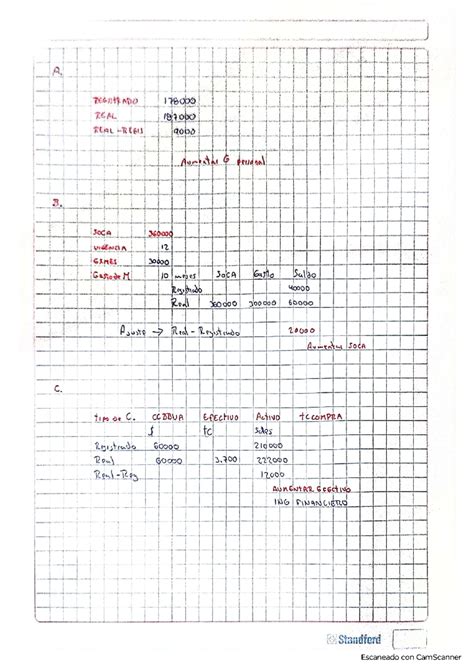 A.
REGISTRADO 178000
REAL 187000
REAL - REGIS 9000
Aumentar G personal
B.
SOCA 360000
VIGENCIA 12
G x MES 30000
Gasto de M 10 meses SOCA Gasto Saldo
Registrado 40000
Real 360000 300000 60000
Ajuste → Real - Registrado 20000
Aumentar SOCA
C.
Tipo de C. CC BBVA EFECTIVO ACTIVO TC COMPRA
$ TC Soles
Registrado 60000 210000
Real 60000 3.700 222000
Real - Reg 12000
AUMENTAR EFECTIVO
ING FINANCIERO
Standford
Escaneado con CamScanner